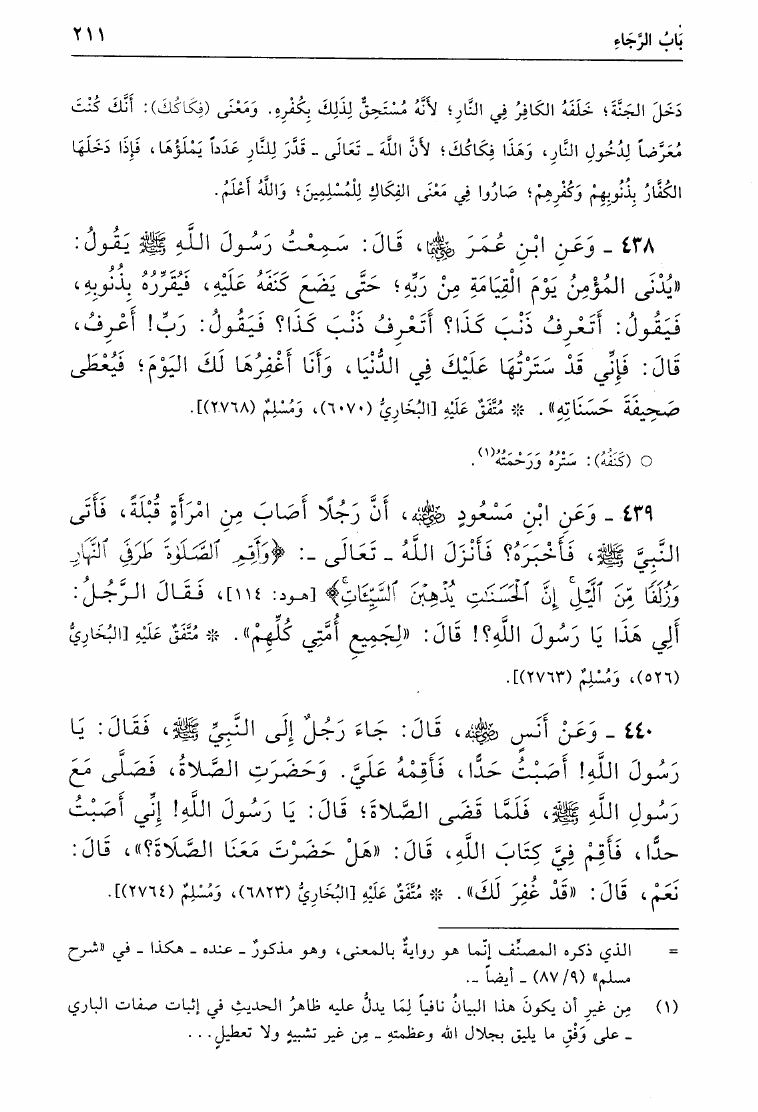 بَابُ الرَّجَاءِ ٢١١
دَخَلَ الجَنَّةَ؛ خَلَفَهُ الكَافِرُ فِي النَّارِ؛ لأَنَّهُ مُسْتَحِقٌّ لِذَلِكَ بِكُفْرِهِ. وَمَعْنَى (فِكَاكُكَ): أَنَّكَ كُنْتَ
مُعَرَّضاً لِدُخُولِ النَّارِ، وَهَذَا فِكَاكُكَ؛ لأَنَّ اللَّهَ ـ تَعَالَى ـ قَدَّرَ لِلنَّارِ عَدَداً يَمْلَؤُهَا، فَإِذَا دَخَلَهَا
الكُفَّارُ بِذُنُوبِهِمْ وَكُفْرِهِمْ؛ صَارُوا فِي مَعْنَى الفِكَاكِ لِلْمُسْلِمِينَ؛ وَاللَّهُ أَعْلَمُ.
٤٣٨ ـ وَعَنِ ابْنِ عُمَرَ رضي الله عنهما، قَالَ: سَمِعْتُ رَسُولَ اللَّهِ ﷺ يَقُولُ:
«يُدْنَى المُؤْمِنُ يَوْمَ الْقِيَامَةِ مِنْ رَبِّهِ؛ حَتَّى يَضَعَ كَنَفَهُ عَلَيْهِ، فَيُقَرِّرُهُ بِذُنُوبِهِ،
فَيَقُولُ: أَتَعْرِفُ ذَنْبَ كَذَا؟ أَتَعْرِفُ ذَنْبَ كَذَا؟ فَيَقُولُ: رَبِّ! أَعْرِفُ،
قَالَ: فَإِنِّي قَدْ سَتَرْتُهَا عَلَيْكَ فِي الدُّنْيَا، وَأَنَا أَغْفِرُهَا لَكَ اليَوْمَ؛ فَيُعْطَى
صَحِيفَةَ حَسَنَاتِهِ». * مُتَّفَقٌ عَلَيْهِ [البُخَارِيُّ (٦٠٧٠)، وَمُسْلِمٌ (٢٧٦٨)].
○ (كَنَفُهُ): سَتْرُهُ وَرَحْمَتُهُ(١).
٤٣٩ ـ وَعَنِ ابْنِ مَسْعُودٍ رضي الله عنه، أَنَّ رَجُلًا أَصَابَ مِنِ امْرَأَةٍ قُبْلَةً، فَأَتَى
النَّبِيَّ ﷺ، فَأَخْبَرَهُ؟ فَأَنْزَلَ اللَّهُ ـ تَعَالَى ـ: ﴿وَأَقِمِ ٱلصَّلَوٰةَ طَرَفَىِ ٱلنَّهَارِ
وَزُلَفًا مِّنَ ٱلَّيْلِ إِنَّ ٱلْحَسَنَـٰتِ يُذْهِبْنَ ٱلسَّيِّـَٔاتِ﴾ [هود: ١١٤]، فَقَالَ الرَّجُلُ:
أَلِي هَذَا يَا رَسُولَ اللَّهِ؟! قَالَ: «لِجَمِيعِ أُمَّتِي كُلِّهِمْ». * مُتَّفَقٌ عَلَيْهِ [البُخَارِيُّ
(٥٢٦)، وَمُسْلِمٌ (٢٧٦٣)].
٤٤٠ ـ وَعَنْ أَنَسٍ رضي الله عنه، قَالَ: جَاءَ رَجُلٌ إِلَى النَّبِيِّ ﷺ، فَقَالَ: يَا
رَسُولَ اللَّهِ! أَصَبْتُ حَدًّا، فَأَقِمْهُ عَلَيَّ. وَحَضَرَتِ الصَّلاةُ، فَصَلَّى مَعَ
رَسُولِ اللَّهِ ﷺ، فَلَمَّا قَضَى الصَّلاةَ؛ قَالَ: يَا رَسُولَ اللَّهِ! إِنِّي أَصَبْتُ
حَدًّا، فَأَقِمْ فِيَّ كِتَابَ اللَّهِ، قَالَ: «هَلْ حَضَرْتَ مَعَنَا الصَّلَاةَ؟»، قَالَ:
نَعَمْ، قَالَ: «قَدْ غُفِرَ لَكَ». * مُتَّفَقٌ عَلَيْهِ [البُخَارِيُّ (٦٨٢٣)، وَمُسْلِمٌ (٢٧٦٤)].
= الذي ذكره المصنِّف إنّما هو روايةٌ بالمعنى، وهو مذكورٌ ـ عنده ـ هكذا ـ في «شرح
مسلم» (٩/ ٨٧) ـ أيضاً ـ.
(١) مِن غيرِ أن يكونَ هذا البيانُ نافياً لِمَا يدلُّ عليه ظاهرُ الحديثِ في إثبات صفات الباري
ـ على وَفْقِ ما يليق بجلال الله وعظمتهِ ـ مِن غير تشبيهٍ ولا تعطيلٍ...